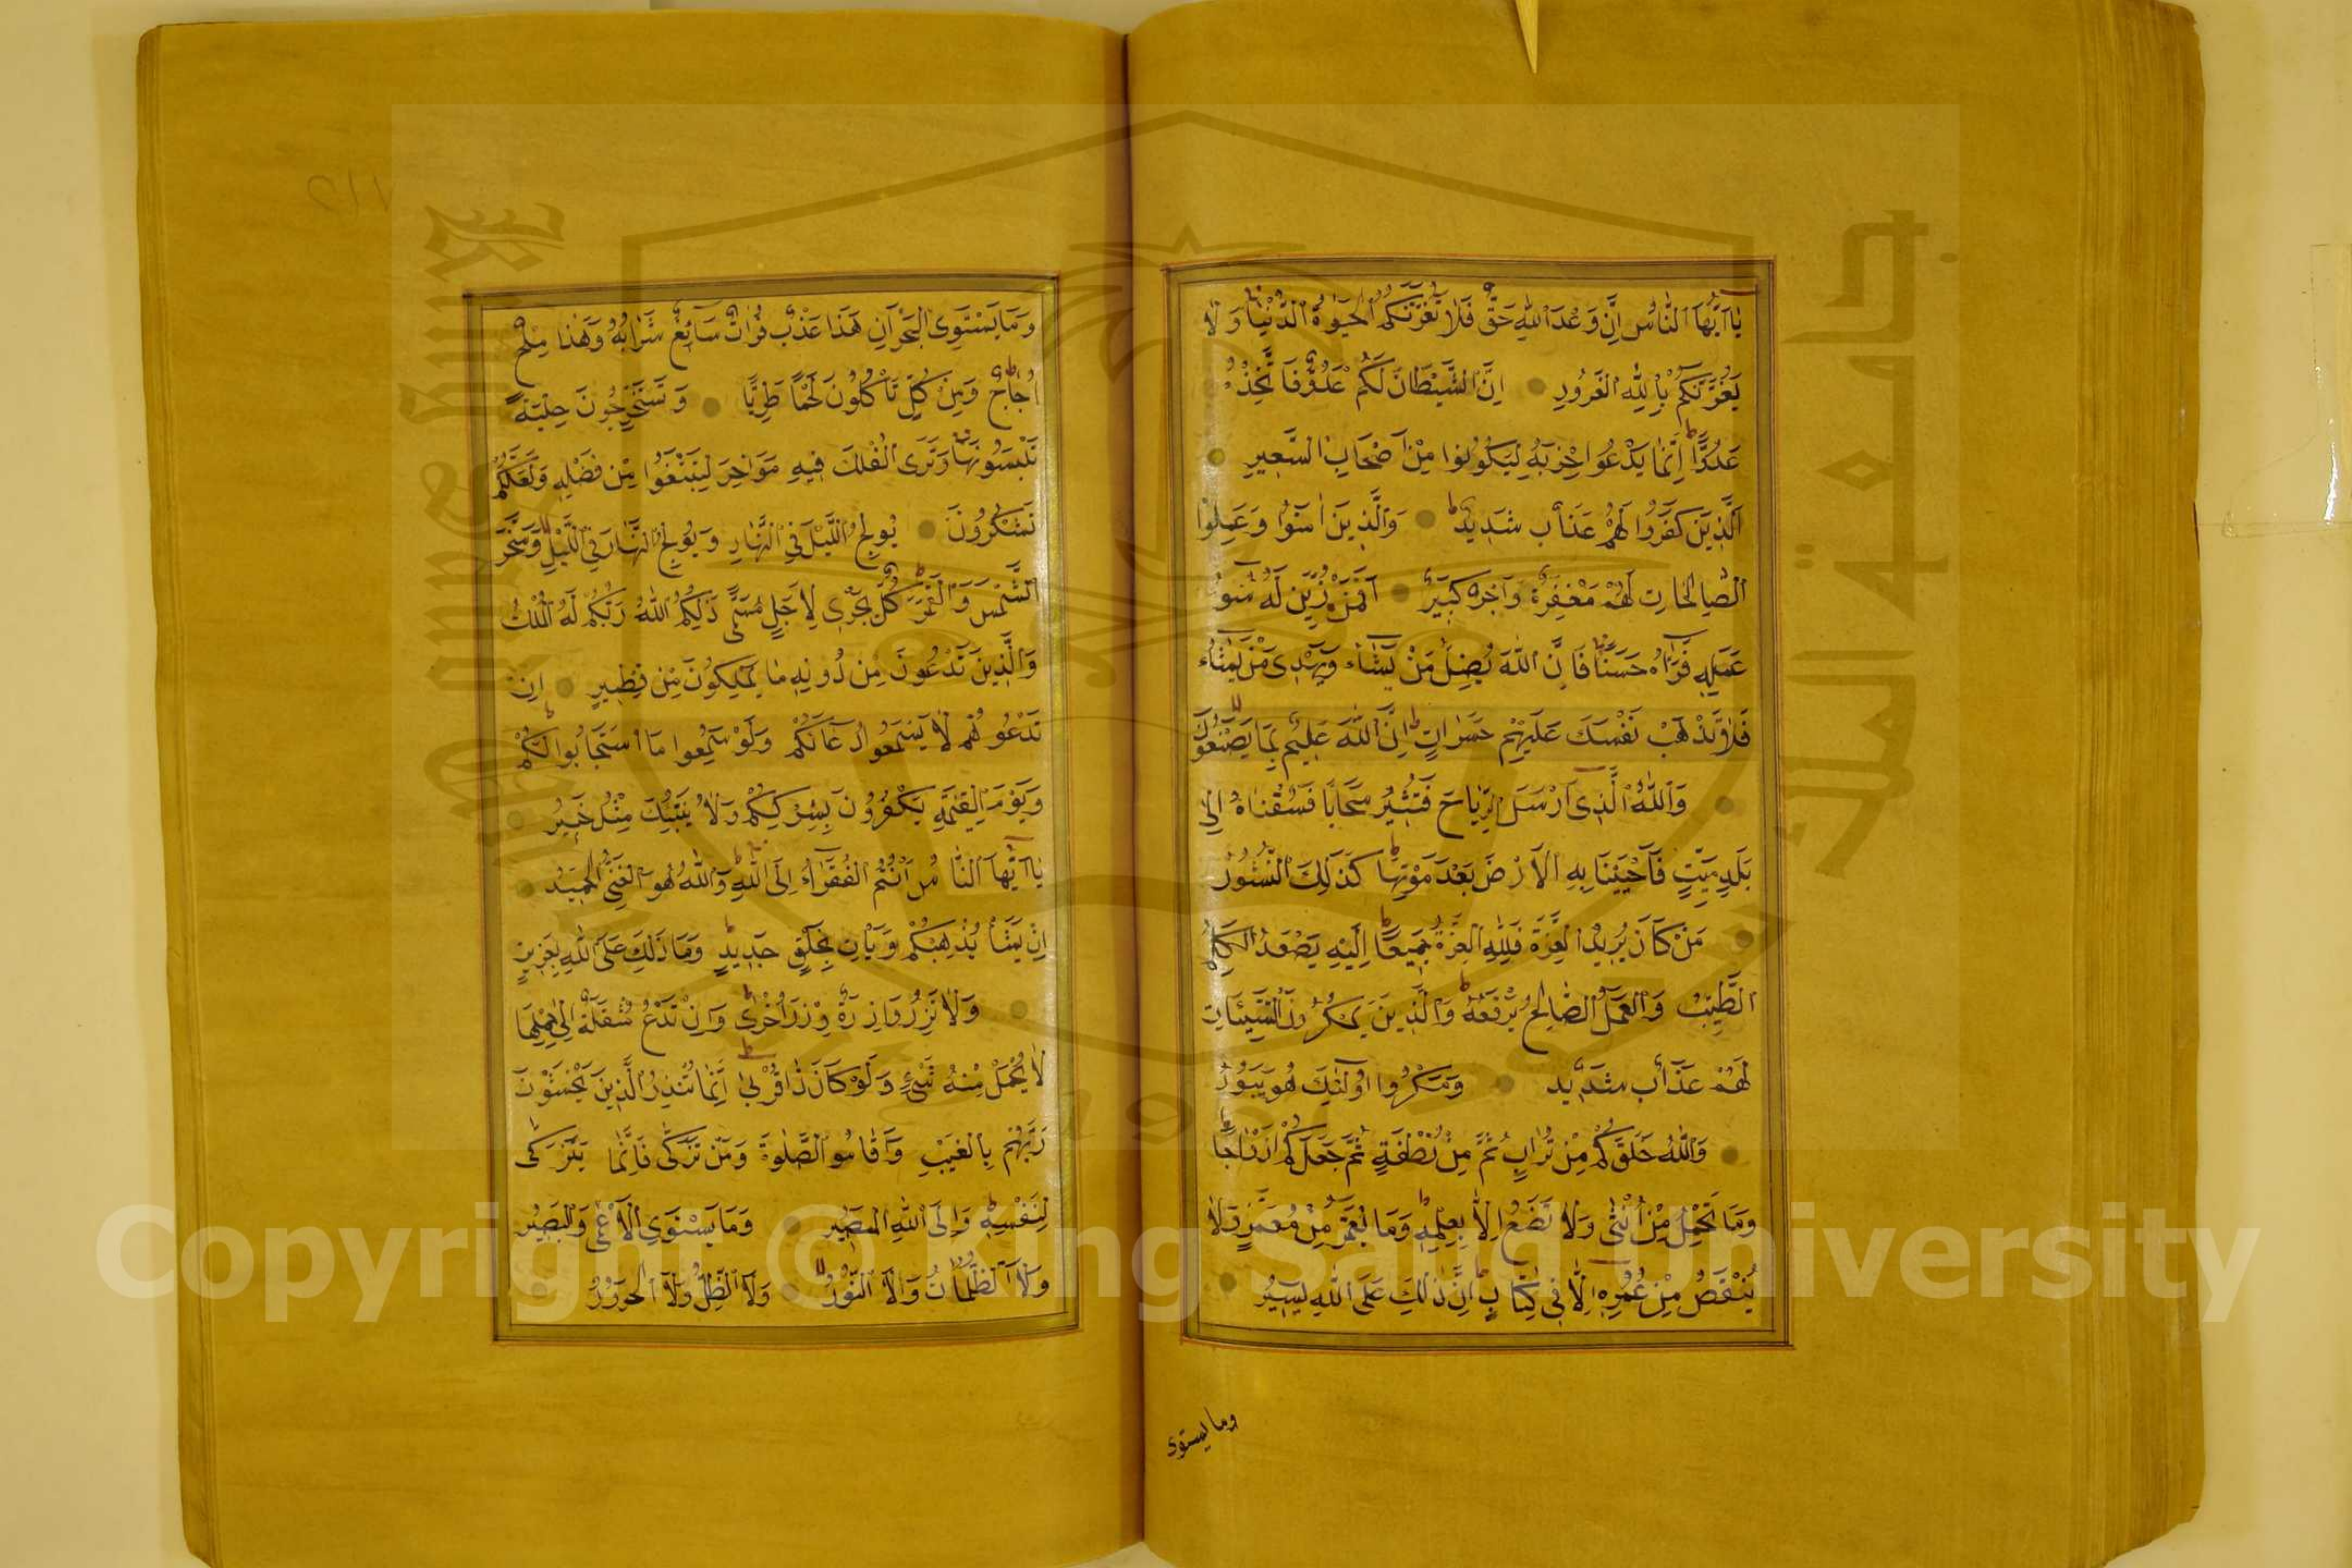 يَاأَيُّهَا النَّاسُ إِنَّ وَعْدَ اللّٰهِ حَقٌّ فَلَا تَغُرَّنَّكُمُ الْحَيٰوةُ الدُّنْيَا وَلَا
يَغُرَّنَّكُمْ بِاللّٰهِ الْغَرُورِ اِنَّ الشَّيْطَانَ لَكُمْ عَدُوٌّ فَاتَّخِذُوهُ
عَدُوًّا اِنَّمَا يَدْعُوا حِزْبَهُ لِيَكُونُوا مِنْ اَصْحَابِ السَّعِيرِ
اَلَّذِينَ كَفَرُوا لَهُمْ عَذَابٌ شَدِيدٌ وَالَّذِينَ اٰمَنُوا وَعَمِلُوا
الصَّالِحَاتِ لَهُمْ مَغْفِرَةٌ وَاَجْرٌ كَبِيرٌ اَفَمَنْ زُيِّنَ لَهُ سُوءُ
عَمَلِهِ فَرَاٰهُ حَسَنًا فَاِنَّ اللّٰهَ يُضِلُّ مَنْ يَشَاءُ وَيَهْدِى مَنْ يَشَاءُ
فَلَا تَذْهَبْ نَفْسُكَ عَلَيْهِمْ حَسَرَاتٍ اِنَّ اللّٰهَ عَلِيمٌ بِمَا يَصْنَعُونَ
وَاللّٰهُ الَّذِى اَرْسَلَ الرِّيَاحَ فَتُثِيرُ سَحَابًا فَسُقْنَاهُ اِلٰى
بَلَدٍ مَيِّتٍ فَاَحْيَيْنَا بِهِ الْاَرْضَ بَعْدَ مَوْتِهَا كَذٰلِكَ النُّشُورُ
مَنْ كَانَ يُرِيدُ الْعِزَّةَ فَلِلّٰهِ الْعِزَّةُ جَمِيعًا اِلَيْهِ يَصْعَدُ الْكَلِمُ
الطَّيِّبُ وَالْعَمَلُ الصَّالِحُ يَرْفَعُهُ وَالَّذِينَ يَمْكُرُونَ السَّيِّئَاتِ
لَهُمْ عَذَابٌ شَدِيدٌ وَمَكْرُ اُولٰئِكَ هُوَ يَبُورُ
وَاللّٰهُ خَلَقَكُمْ مِنْ تُرَابٍ ثُمَّ مِنْ نُطْفَةٍ ثُمَّ جَعَلَكُمْ اَزْوَاجًا
وَمَا تَحْمِلُ مِنْ اُنْثٰى وَلَا تَضَعُ اِلَّا بِعِلْمِهِ وَمَا يُعَمَّرُ مِنْ مُعَمَّرٍ وَلَا
يُنْقَصُ مِنْ عُمُرِهِ اِلَّا فِى كِتَابٍ اِنَّ ذٰلِكَ عَلَى اللّٰهِ يَسِيرٌ
وما يستوى
وَمَا يَسْتَوِى الْبَحْرَانِ هٰذَا عَذْبٌ فُرَاتٌ سَائِغٌ شَرَابُهُ وَهٰذَا مِلْحٌ
اُجَاجٌ وَمِنْ كُلٍّ تَأْكُلُونَ لَحْمًا طَرِيًّا وَتَسْتَخْرِجُونَ حِلْيَةً
تَلْبَسُونَهَا وَتَرَى الْفُلْكَ فِيهِ مَوَاخِرَ لِتَبْتَغُوا مِنْ فَضْلِهِ وَلَعَلَّكُمْ
تَشْكُرُونَ يُولِجُ اللَّيْلَ فِى النَّهَارِ وَيُولِجُ النَّهَارَ فِى اللَّيْلِ وَسَخَّرَ
الشَّمْسَ وَالْقَمَرَ كُلٌّ يَجْرِى لِاَجَلٍ مُسَمًّى ذٰلِكُمُ اللّٰهُ رَبُّكُمْ لَهُ الْمُلْكُ
وَالَّذِينَ تَدْعُونَ مِنْ دُونِهِ مَا يَمْلِكُونَ مِنْ قِطْمِيرٍ اِنْ
تَدْعُوهُمْ لَا يَسْمَعُوا دُعَاءَكُمْ وَلَوْ سَمِعُوا مَا اسْتَجَابُوا لَكُمْ
وَيَوْمَ الْقِيٰمَةِ يَكْفُرُونَ بِشِرْكِكُمْ وَلَا يُنَبِّئُكَ مِثْلُ خَبِيرٍ
يَااَيُّهَا النَّاسُ اَنْتُمُ الْفُقَرَاءُ اِلَى اللّٰهِ وَاللّٰهُ هُوَ الْغَنِىُّ الْحَمِيدُ
اِنْ يَشَأْ يُذْهِبْكُمْ وَيَأْتِ بِخَلْقٍ جَدِيدٍ وَمَا ذٰلِكَ عَلَى اللّٰهِ بِعَزِيزٍ
وَلَا تَزِرُ وَازِرَةٌ وِزْرَ اُخْرٰى وَاِنْ تَدْعُ مُثْقَلَةٌ اِلٰى حِمْلِهَا
لَا يُحْمَلْ مِنْهُ شَىْءٌ وَلَوْ كَانَ ذَا قُرْبٰى اِنَّمَا تُنْذِرُ الَّذِينَ يَخْشَوْنَ
رَبَّهُمْ بِالْغَيْبِ وَاَقَامُوا الصَّلٰوةَ وَمَنْ تَزَكّٰى فَاِنَّمَا يَتَزَكّٰى
لِنَفْسِهِ وَاِلَى اللّٰهِ الْمَصِيرُ وَمَا يَسْتَوِى الْاَعْمٰى وَالْبَصِيرُ
وَلَا الظُّلُمَاتُ وَلَا النُّورُ وَلَا الظِّلُّ وَلَا الْحَرُورُ
Copyright © King Saud University